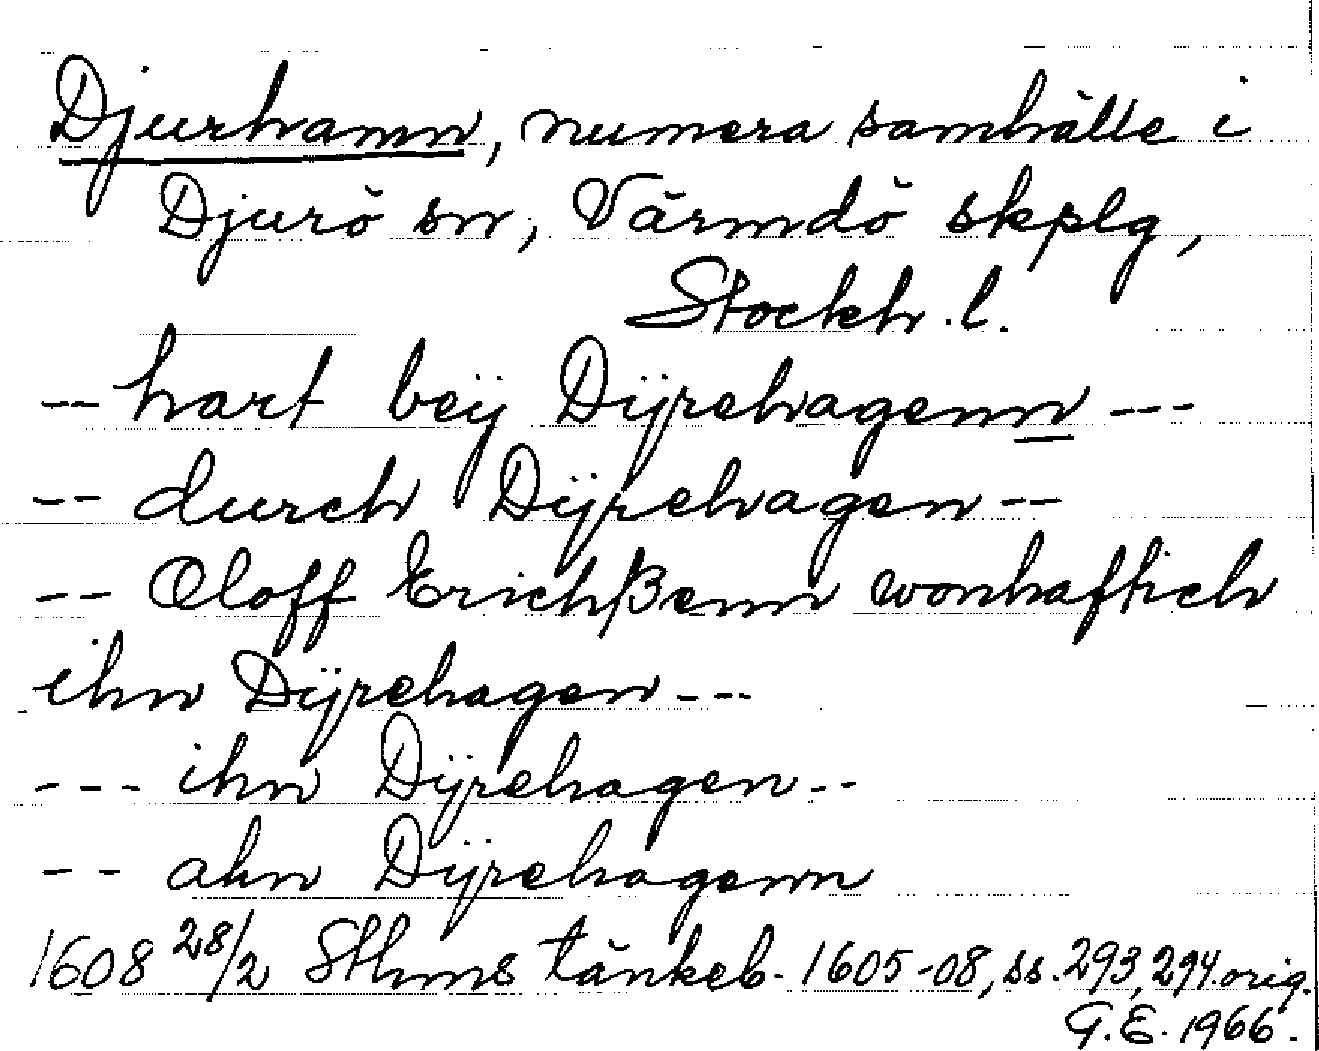 Djurhamn, numera samhälle i
Djurö sn, Värmdö skplg,
Stockh. l.
-- hart beÿ Dÿrehagenn ---
-- durch Dÿrehagen --
-- Oloff Erichßenn wonhaftich
ihn Dÿrehagen ---
--- ihn Dÿrehagen --
-- ahn Dÿrehagenn
1608 28/2 Sthms tänkeb. 1605-08, ss. 293, 294. orig.
G.E. 1966.